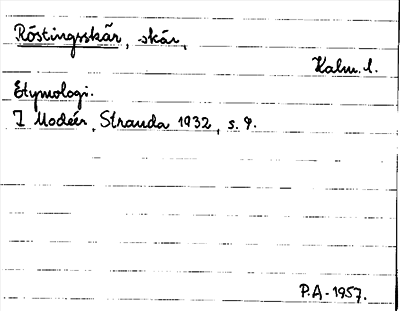 Röstingsskär, skär,
Kalm. l.
Etymologi.
I Modéer, Stranda 1932, s. 9.
P.A-1957.